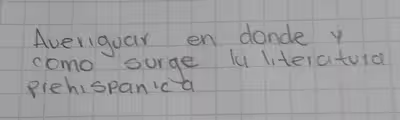 Averiguar en donde y
como surge la literatura
prehispanica